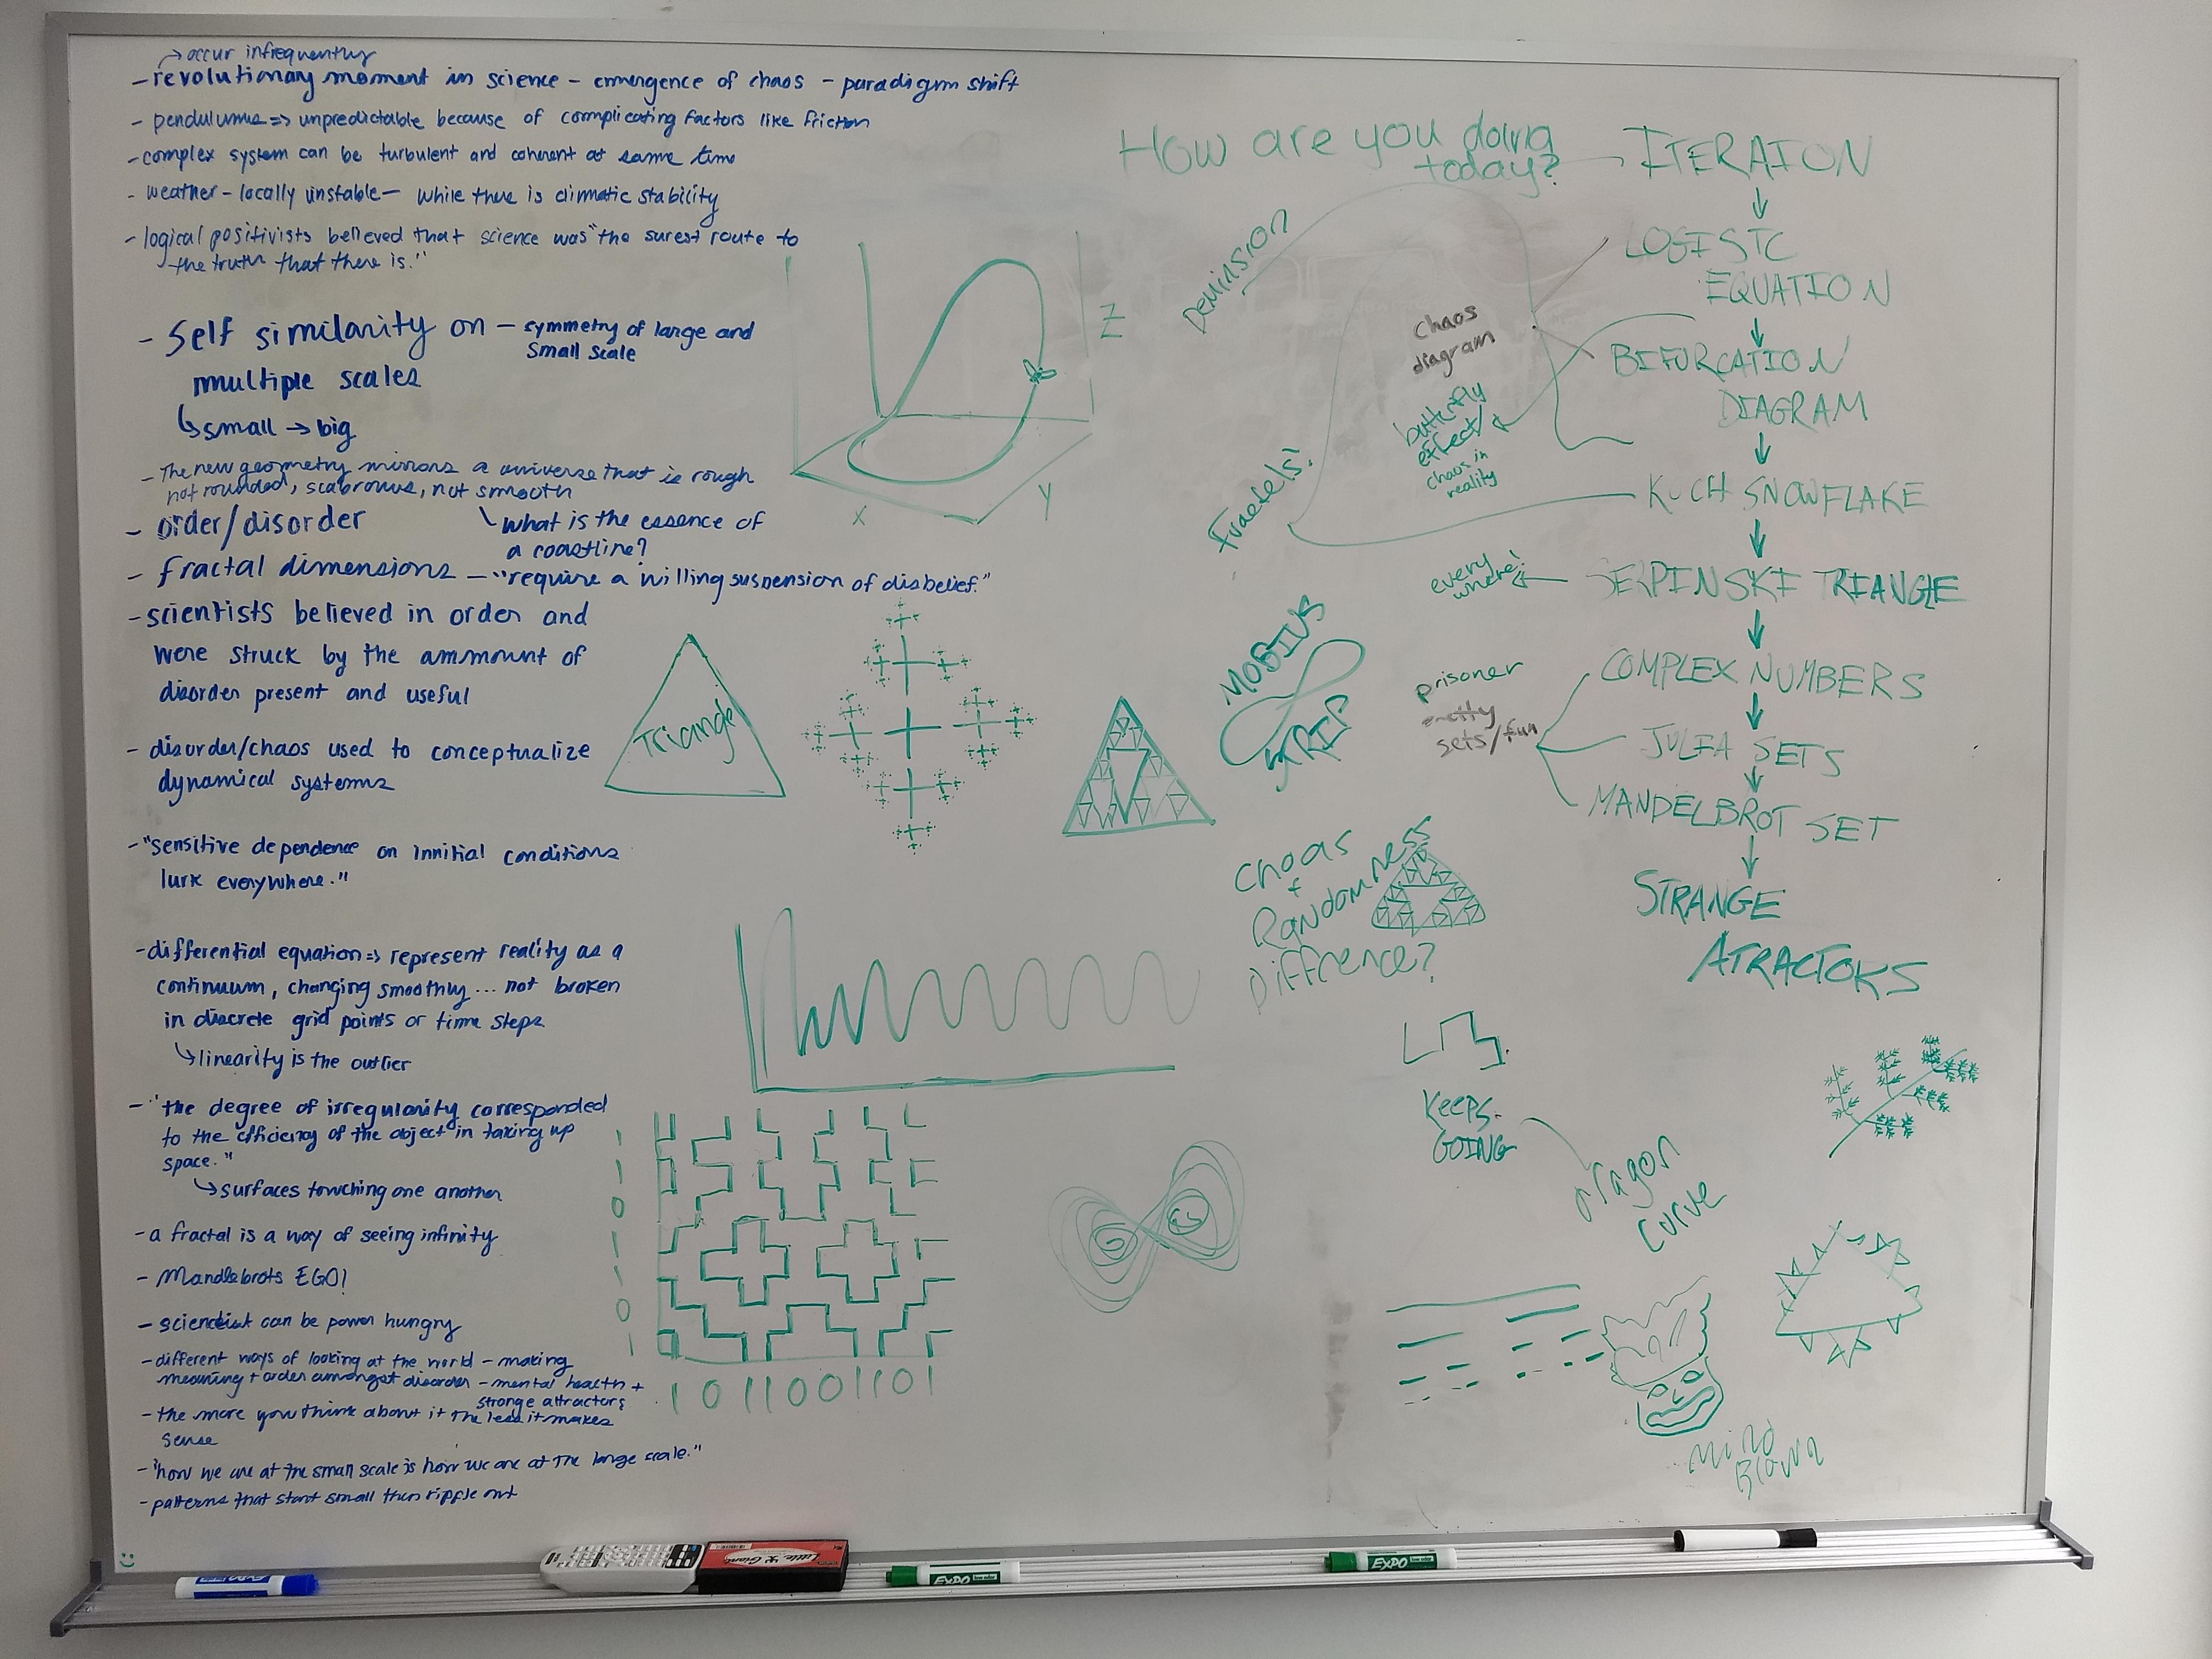 → occur infrequently
- revolutionary moment in science - emergence of chaos - paradigm shift
- pendulums => unpredictable because of complicating factors like friction
- complex system can be turbulent and coherent at same time
- weather - locally unstable - while there is climatic stability
- logical positivists believed that science was "the surest route to
the truth that there is."
- Self similarity on - symmetry of large and
small scale
multiple scales
↳ small → big
- The new geometry mirrors a universe that is rough
not rounded, scabrous, not smooth
- order/disorder
\ what is the essence of
a coastline?
- fractal dimensions - "require a willing suspension of disbelief."
- scientists believed in order and
were struck by the ammount of
disorder present and useful
- disorder/chaos used to conceptualize
dynamical systems
- "sensitive dependence on innitial conditions
lurk everywhere."
- differential equation => represent reality as a
continuum, changing smoothly... not broken
in discrete grid points or time steps
↳ linearity is the outlier
- "the degree of irregularity corresponded
to the efficiency of the object in taking up
space."
↳ surfaces touching one another
- a fractal is a way of seeing infinity
- Mandlebrots EGO!
- scientist can be power hungry
- different ways of looking at the world - making
meaning + order amongst disorder - mental health +
strange attractors
- the more you think about it the less it makes
sense
- "how we are at the small scale is how we are at the large scale."
- patterns that start small then ripple out
:)
Z
X
Y
Triangle
1
1
0
1
1
0
1
1 0 1 1 0 0 1 1 0 1
How are you doing
today?
DEMINSION
Fractels!
chaos
diagram
butterfly
effect/
chaos in
reality
every
where!
MOBIUS
STRIP
prisoner
sets/fun
CHOAS
+
RANDOMNESS
DIFFRENCE?
KEEPS
GOING
Dragon
Curve
MIND
BLOWN
ITERAION
↓
LOGISTC
EQUATION
↓
BIFURCATION
DIAGRAM
↓
KOCH SNOWFLAKE
↓
SERPINSKI TRIANGLE
↓
COMPLEX NUMBERS
↓
JULIA SETS
↓
MANDELBROT SET
↓
STRANGE
ATRACTORS
Little Giant
EXPO
EXPO